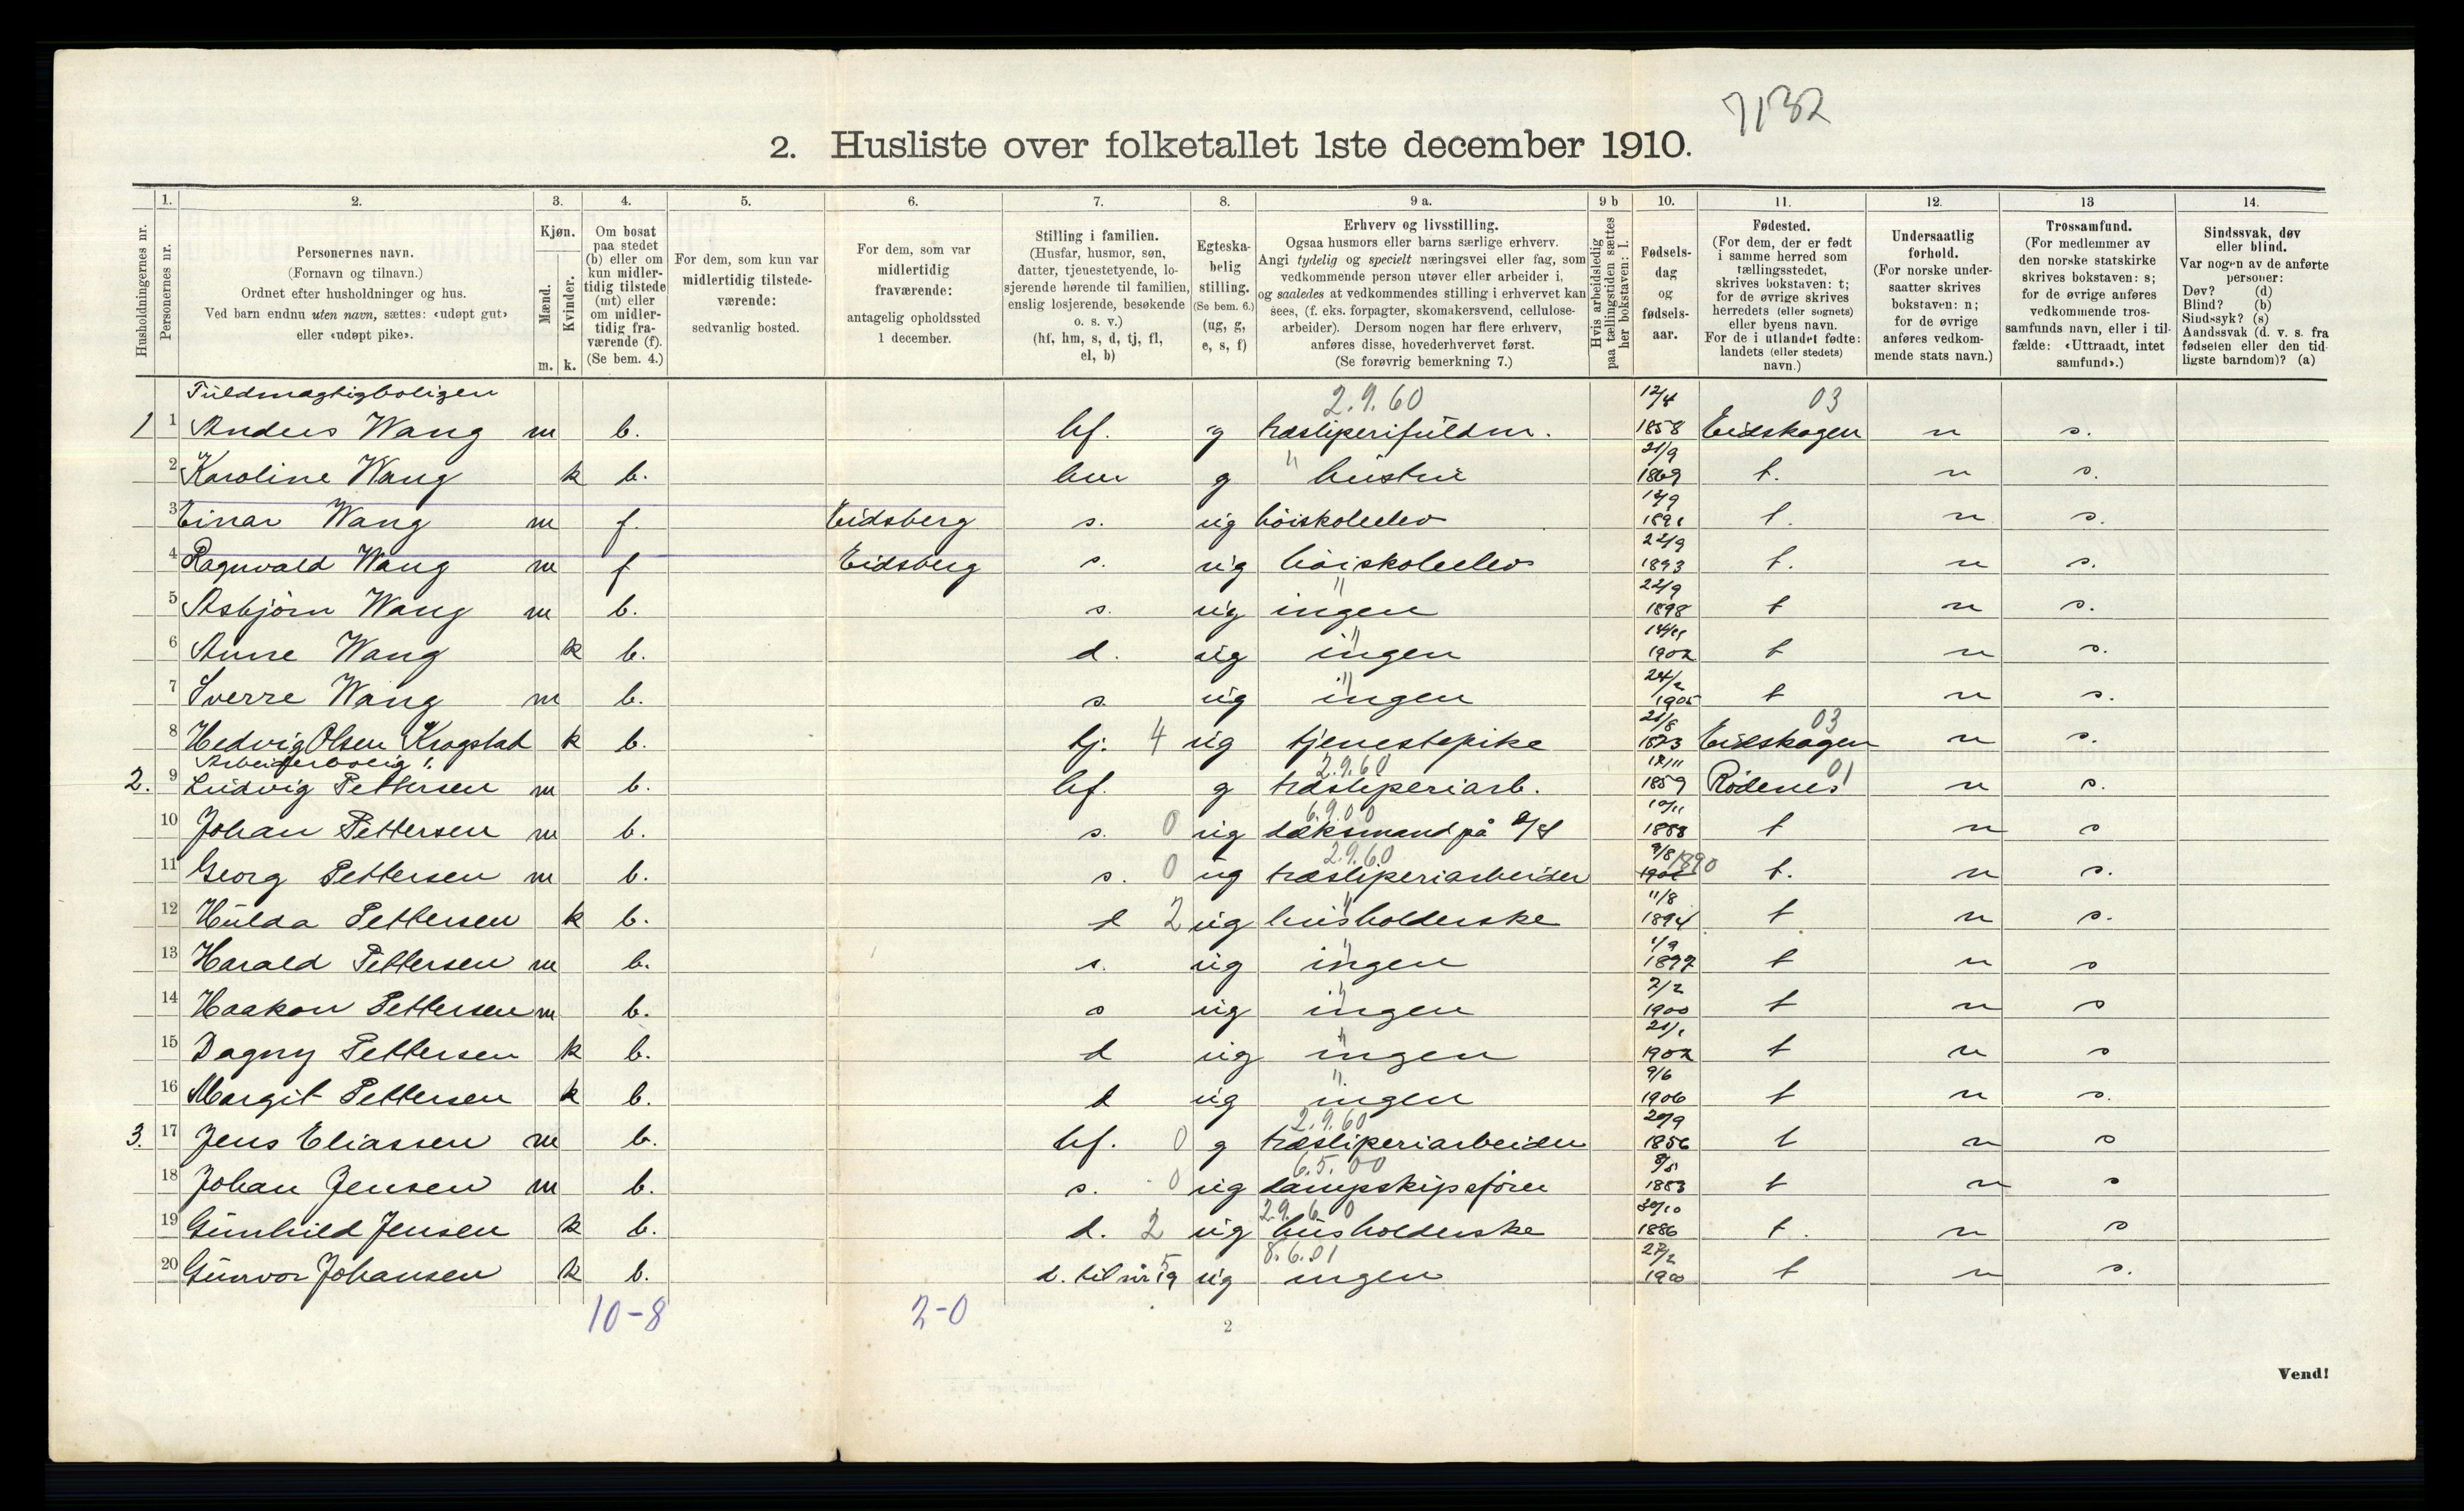 7132
2. Husliste over folketallet 1ste december 1910.
Husholdningernes nr.
1. Personernes nr.
2. Personernes navn. (Fornavn og tilnavn.) Ordnet efter husholdninger og hus. Ved barn endnu uten navn, sættes: «udøpt gut» eller «udøpt pike».
3. Kjøn. Mænd. m. Kvinder. k.
4. Om bosat paa stedet (b) eller om kun midlertidig tilstede (mt) eller om midlertidig fraværende (f). (Se bem. 4.)
5. For dem, som kun var midlertidig tilstedeværende: sedvanlig bosted.
6. For dem, som var midlertidig fraværende: antagelig opholdssted 1 december.
7. Stilling i familien. (Husfar, husmor, søn, datter, tjenestetyende, losjerende hørende til familien, enslig losjerende, besøkende o. s. v.) (hf, hm, s, d, tj, fl, el, b)
8. Egteskabelig stilling. (Se bem. 6.) (ug, g, e, s, f)
9 a. Erhverv og livsstilling. Ogsaa husmors eller barns særlige erhverv. Angi tydelig og specielt næringsvei eller fag, som vedkommende person utøver eller arbeider i, og saaledes at vedkommendes stilling i erhvervet kan sees, (f. eks. forpagter, skomakersvend, cellulosearbeider). Dersom nogen har flere erhverv, anføres disse, hovederhvervet først. (Se forøvrig bemerkning 7.)
9 b Hvis arbeidsledig paa tællingstiden sættes her bokstaven: l.
10. Fødselsdag og fødselsaar.
11. Fødested. (For dem, der er født i samme herred som tællingsstedet, skrives bokstaven: t; for de øvrige skrives herredets (eller sognets) eller byens navn. For de i utlandet fødte: landets (eller stedets) navn.)
12. Undersaatlig forhold. (For norske undersaatter skrives bokstaven: n; for de øvrige anføres vedkommende stats navn.)
13 Trossamfund. (For medlemmer av den norske statskirke skrives bokstaven: s; for de øvrige anføres vedkommende trossamfunds navn, eller i tilfælde: «Uttraadt, intet samfund».)
14. Sindssvak, døv eller blind. Var nogen av de anførte personer: Døv? (d) Blind? (b) Sindssyk? (s) Aandssvak (d. v. s. fra fødselen eller den tidligste barndom)? (a)
Fuldmægtigboligen 2.9.60 03
1 1 Anders Wang m b. hf. g træsliperifuldm. 12/4 1858 Eidskogen n s.
2 Karoline Wang k b. hm g " hustru 21/9 1869 t. n s.
3 Einar Wang m f. Eidsberg s. ug höiskoleelev 1891 t. n s.
4 Ragnvald Wang m f Eidsberg s. ug höiskoleelev 22/9 1893 t. n s.
5 Asbjörn Wang m b. s. ug " ingen 22/9 1898 t n s.
6 Anne Wang k b. d. ug " ingen 1902 t n s.
7 Sverre Wang m b. s. ug " ingen 24/2 1905 t n s.
8 Hedvig Olsen Krogstad k b. tj. 4 ug tjenestepike 21/8 1873 Eidskogen 03 n s.
Arbeiderbolig 1.
2. 9 Ludvig Pettersen m b. hf. g træsliperiarb. 2.9.60 12/11 1859 Rödenes 01 n s.
10 Johan Pettersen m b. s. 0 ug dæksmand på D/S 6.9.00 10/11 1888 t n s
11 Georg Pettersen m b. s. 0 ug træsliperiarbeider 2.9.60 9/8 1890 t. n s.
12 Hulda Pettersen k b. d 2 ug " husholderske 11/8 1894 t n s.
13 Harald Pettersen m b. s. ug " ingen 1/9 1897 t n s
14 Haakon Pettersen m b. s ug " ingen 7/2 1900 t n s
15 Dagny Pettersen k b. d ug " ingen 21/1 1902 t n s
16 Margit Pettersen k b. d ug " ingen 9/6 1906 t n s.
3. 17 Jens Eliassen m b. hf. 0 g træsliperiarbeider 2.9.60 20/9 1856 t n s
18 Johan Jensen m b. s. 0 ug dampskipsförer 6.5.00 1883 t n s
19 Gunhild Jensen k b. d. 2 ug husholderske 2.9.60 30/10 1886 t. n s
20 Gunvor Johansen k b. d. til nr 19 5 ug ingen 8.6.01 27/2 1900 t n s.
10-8 2-0
2
Vend!